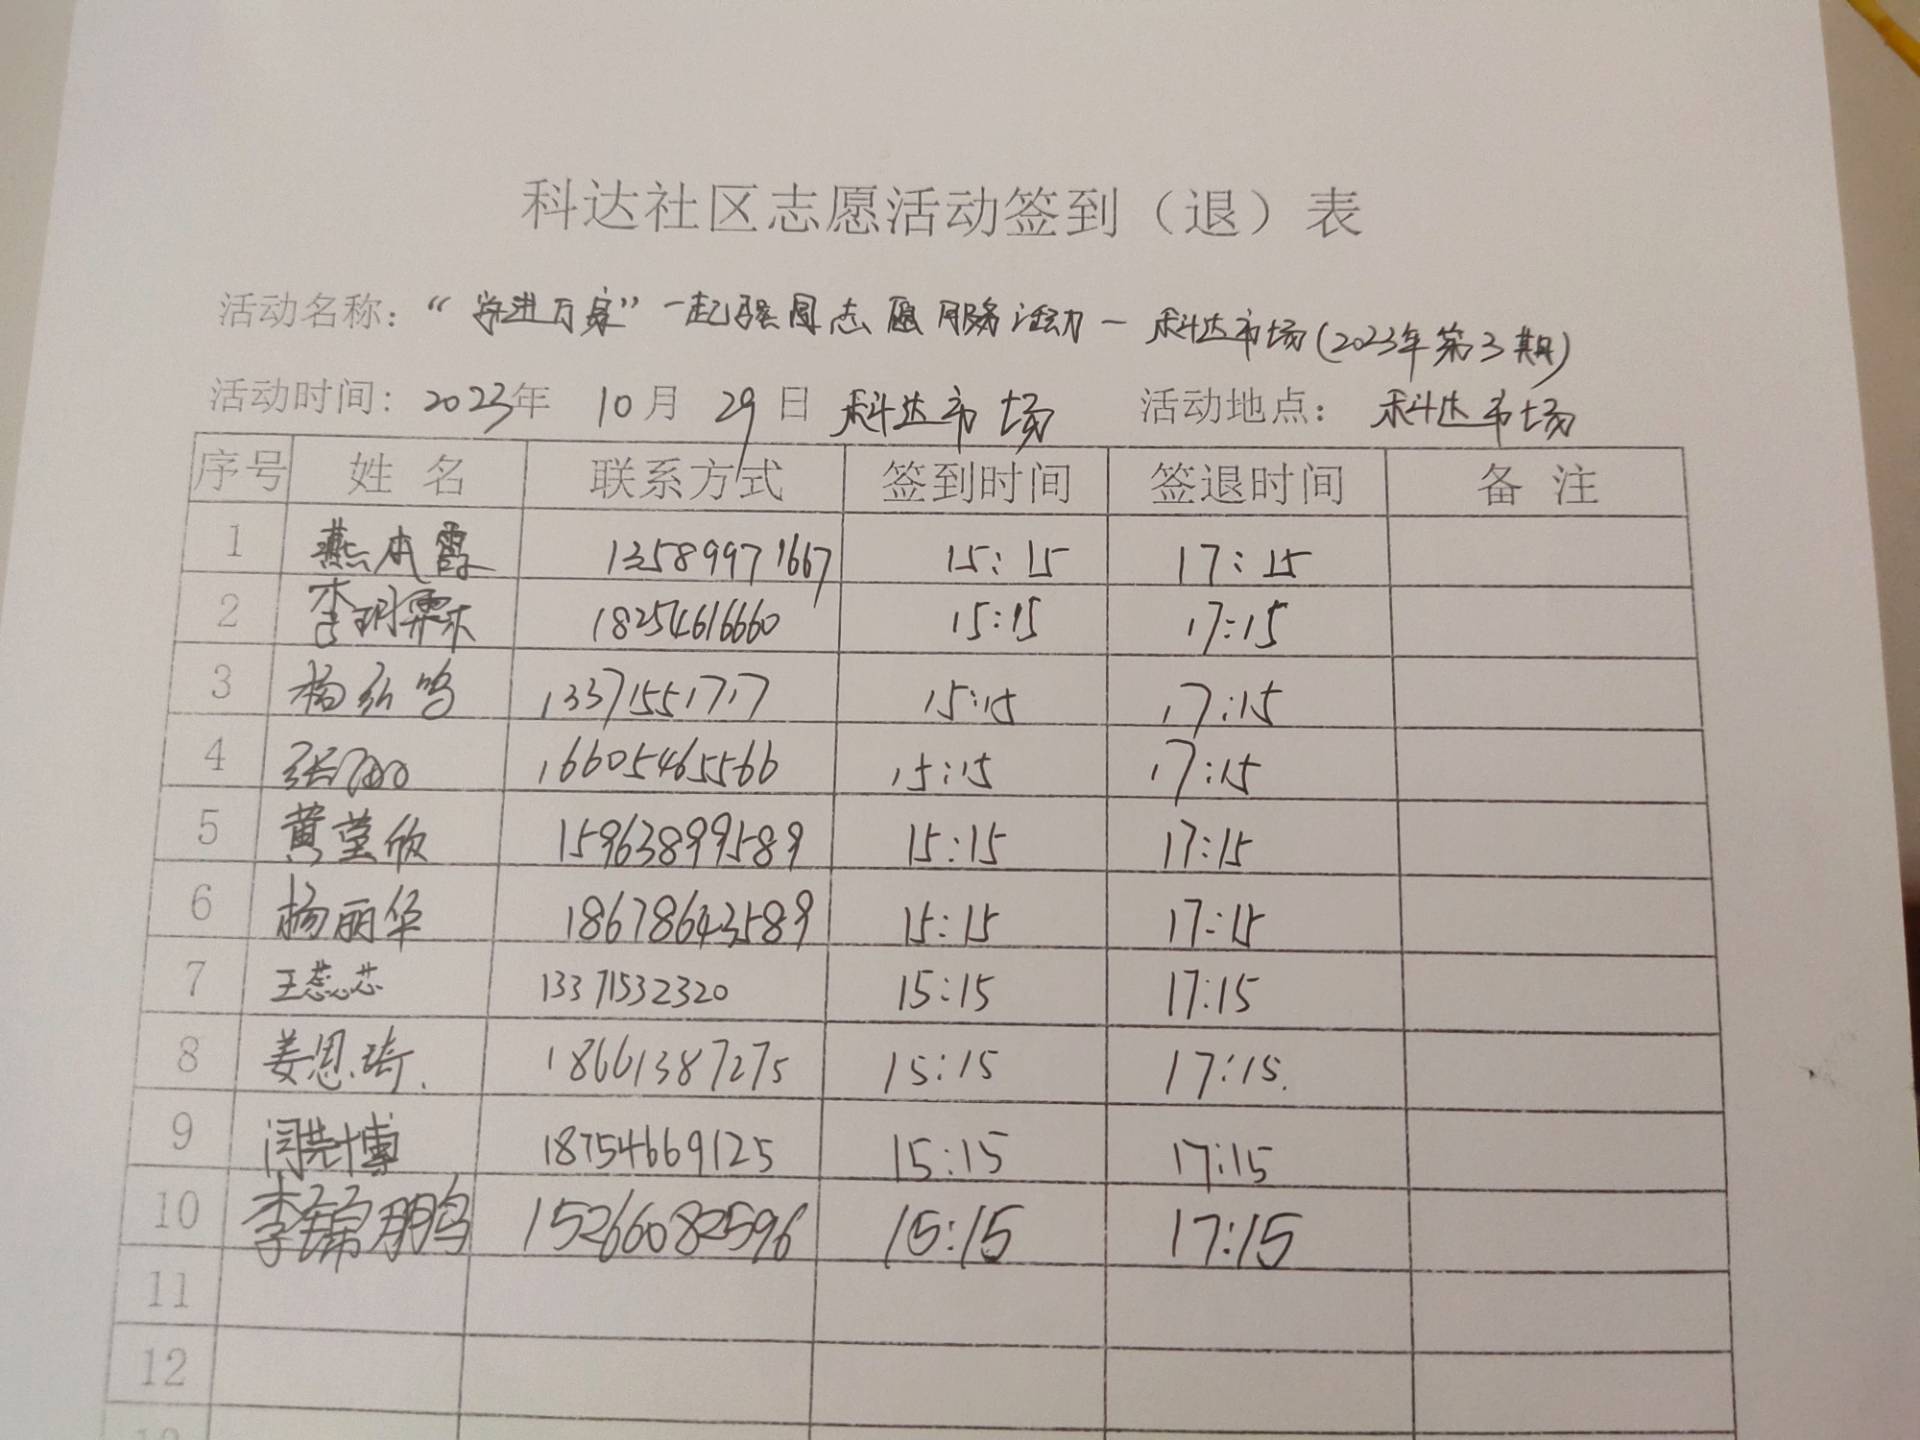 科达社区志愿活动签到（退）表
活动名称：“学进万家”一起强国志愿服务活动一科达市场(2023年第3期)
活动时间：2023年 10月 29日 科达市场 活动地点：科达市场
序号 姓名 联系方式 签到时间 签退时间 备注
1 燕本霞 13589971667 15:15 17:15
2 李玥霏 18254616660 15:15 17:15
3 杨 鸣 13371551717 15:15 17:15
4 张 16605465566 15:15 17:15
5 黄莹欣 15963899589 15:15 17:15
6 杨丽华 18678643589 15:15 17:15
7 王蕊芯 13371532320 15:15 17:15
8 姜思琦. 18661387275 15:15 17:15.
9 闫先博 18754669125 15:15 17:15
10 李锦鹏 15266082596 15:15 17:15
11
12